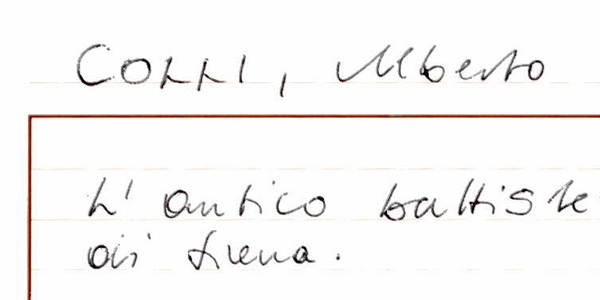 COLLI, Alberto
L'antico battiste
di Siena.